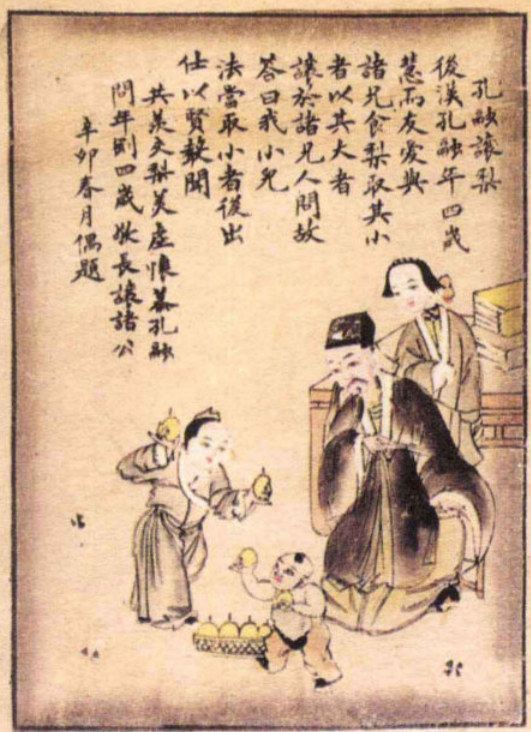 孔融讓梨
後漢孔融年四歲
慧而友愛與
諸兄食梨取其小
者以其大者
讓於諸兄人問故
答曰我小兒
法當取小者後出
仕以賢聞
共羨交梨美虛懷慕孔融
問年四歲長讓諸公
辛卯春月偶題